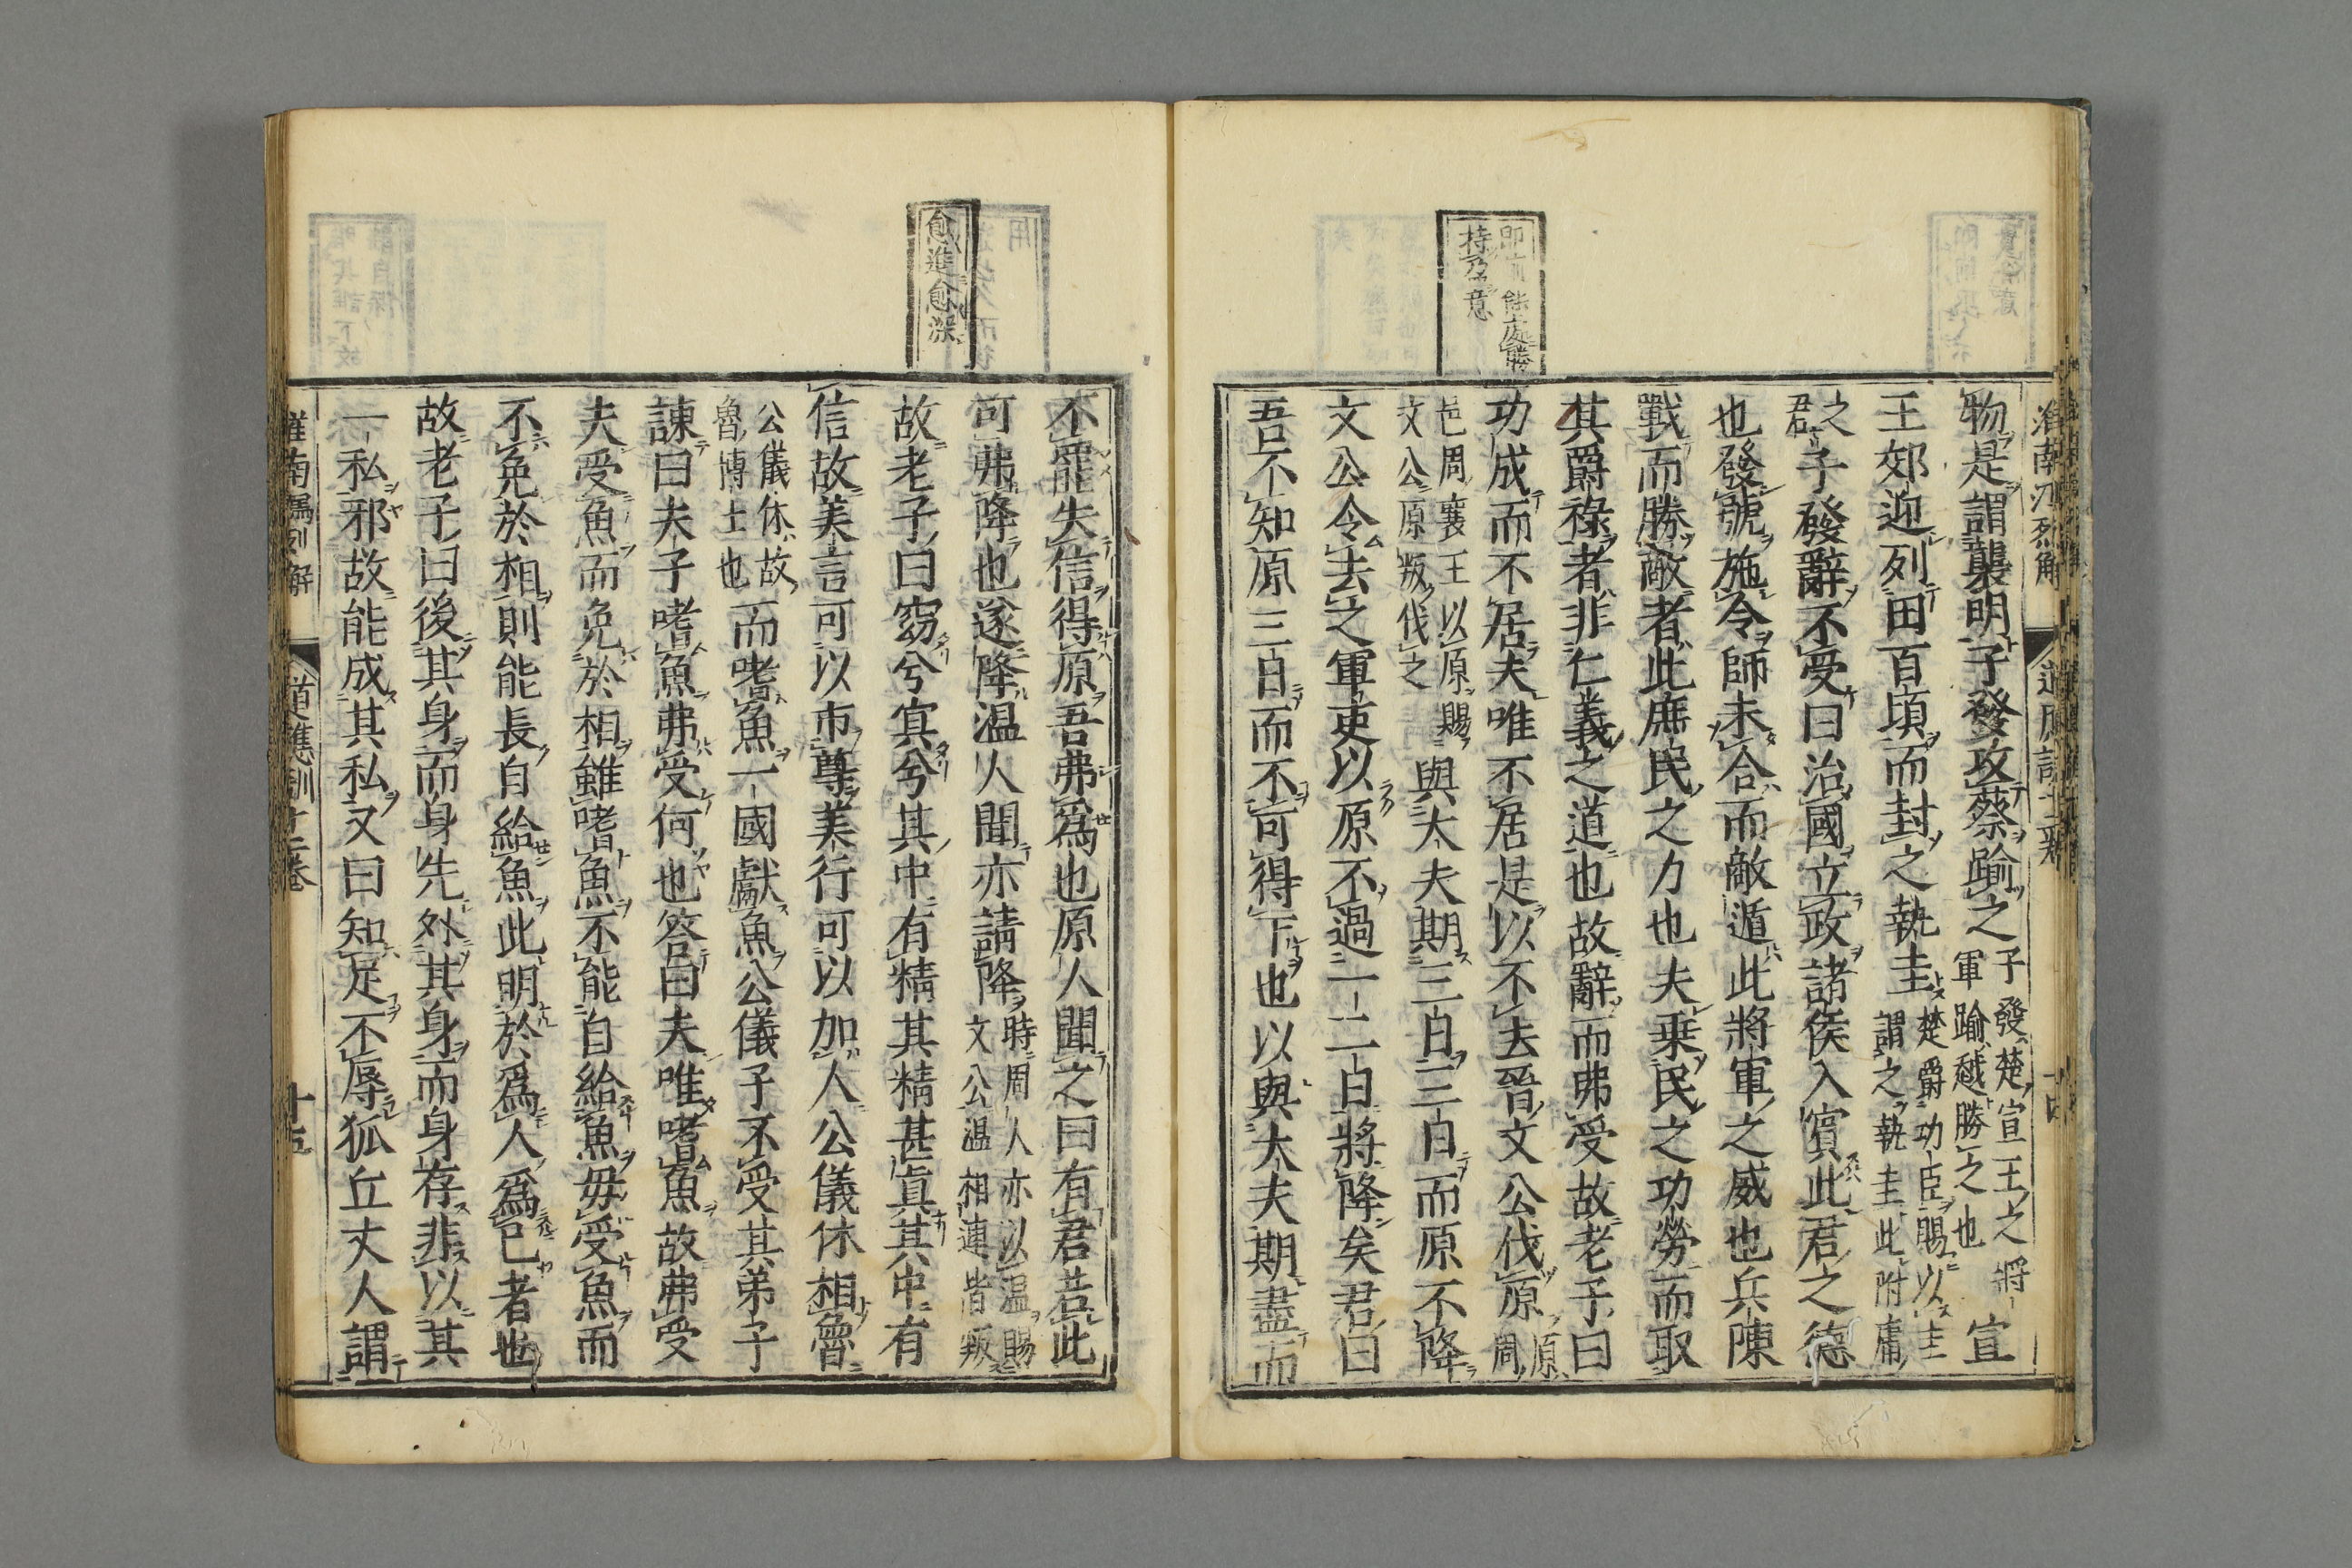 物是謂襲明子發攻蔡踰之子發楚宣王之將軍踰越勝之也宣
王郊迎列田百頃而封之執圭楚爵功臣賜以圭謂之執圭此附庸
之君子發辭不受曰治國立政諸侯入賓此君之德
也發號施令師未合而敵遁此將軍之威也兵陳
戰而勝敵者此庶民之力也夫乗民之功勞而取
其爵祿者非仁義之道也故辭而弗受故老子曰
功成而不居夫唯不居是以不去晉文公伐原原周
邑周襄王以原賜文公原叛伐之與大夫期三日三日而原不降
文公令去之軍吏以原不過一二日將降矣君曰
吾不知原三日而不可得下也以與大夫期盡而
即前能處勝
持勝意
不罷失信得原吾弗爲也原人聞之曰有君若此
可弗降也遂降温人聞亦請降時周人亦以温賜文公温相連皆叛
故老子曰窈兮冥兮其中有精其精甚眞其中有
信故美言可以市尊美行可以加人公儀休相魯
公儀休故魯博士也而嗜魚一國獻魚公儀子不受其弟子
諫曰夫子嗜魚弗受何也答曰夫唯嗜魚故弗受
夫受魚而免於相雖嗜魚不能自給魚毋受魚而
不免於相則能長自給魚此明於爲人爲己者也
故老子曰後其身而身先外其身而身存非以其
一私邪故能成其私又曰知足不辱狐丘丈人謂
愈進愈深
淮南鴻列解
道應訓十二巻
十五